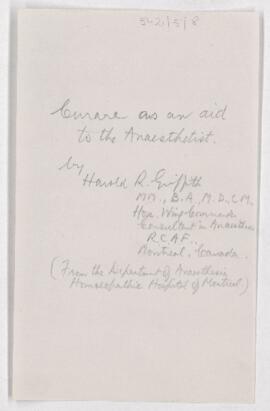 542/5/8
Curare as an aid
to the Anaesthetist.
by
Harold R. Griffith
M.M., B.A., M.D., C.M.
Hon. Wing Commander
Consultant in Anaesthesia
R.C.A.F.,
Montreal, Canada.
(From the Department of Anaesthesia
Homoeopathic Hospital of Montreal)